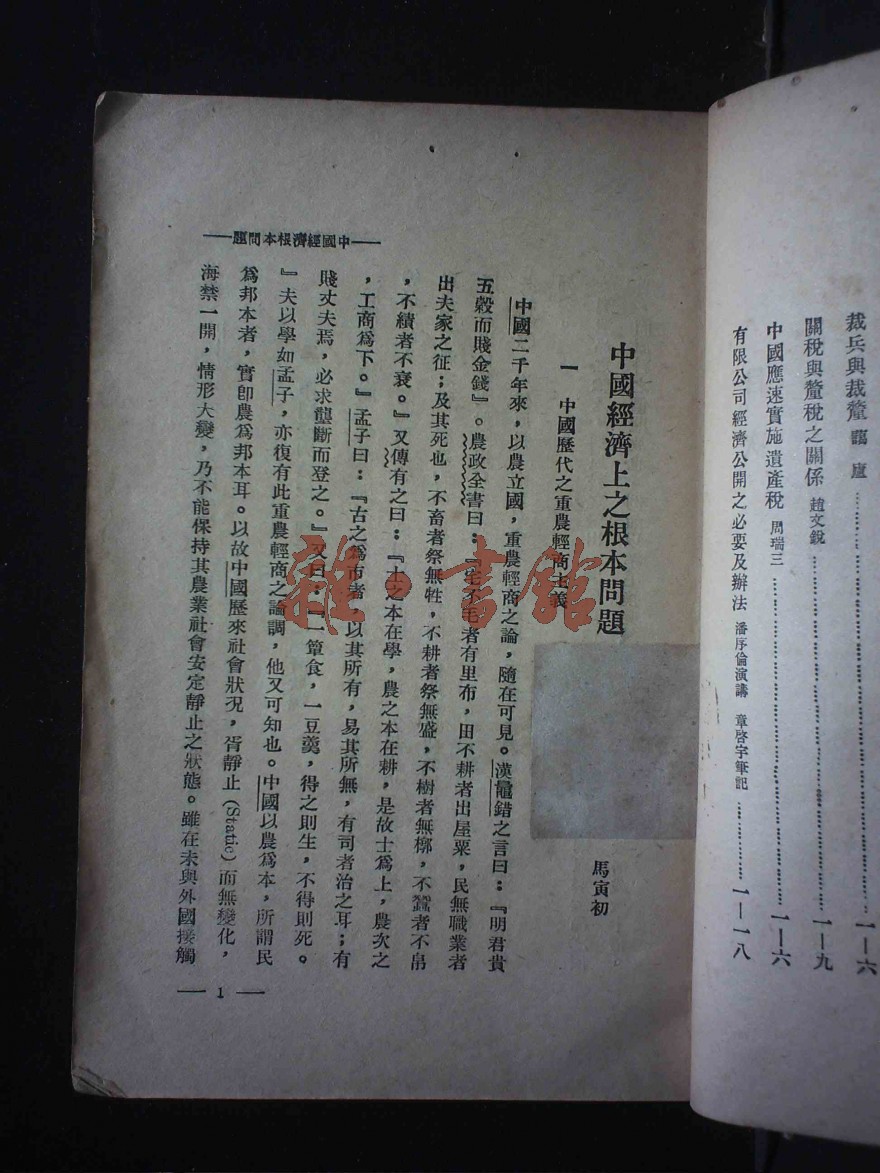 裁兵與裁釐 靄廬……………………一—六
關稅與釐稅之關係 趙文銳……………………一—九
中國應速實施遺產稅 周瑞三……………………一—六
有限公司經濟公開之必要及辦法 潘序倫演講 章啓宇筆記……………一—一八
中國經濟上之根本問題
馬寅初
一 中國歷代之重農輕商主義
中國二千年來，以農立國，重農輕商之論，隨在可見。漢鼂錯之言曰：『明君貴
五穀而賤金錢』。農政全書曰：『宅不毛者有里布，田不耕者出屋粟，民無職業者
出夫家之征；及其死也，不畜者祭無牲，不耕者祭無盛，不樹者無槨，不蠶者不帛
，不績者不衰。』又傳有之曰：『士之本在學，農之本在耕，是故士爲上，農次之
，工商爲下。』孟子曰：『古之爲市者，以其所有，易其所無，有司者治之耳；有
賤丈夫焉，必求壟斷而登之。』又曰：『一簞食，一豆羹，得之則生，不得則死。
』夫以學如孟子，亦復有此重農輕商之論調，他又可知也。中國以農爲本，所謂民
爲邦本者，實卽農爲邦本耳。以故中國歷來社會狀況，胥靜止(Static)而無變化，
海禁一開，情形大變，乃不能保持其農業社會安定靜止之狀態。雖在未與外國接觸
——中國經濟根本問題——
— 1 —
雜·書館